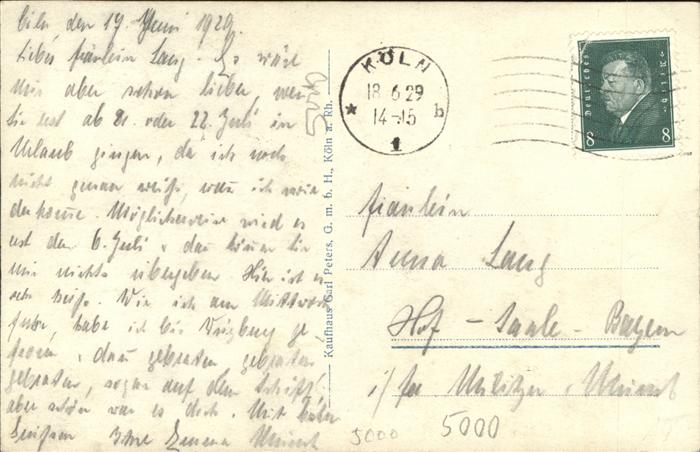 Cöln, den 17. Juni 1929.
Liebes Fräulein Lang. Es wäre
mir aber schon lieber, wenn
Sie erst ab 21. oder 22. Juli in
Urlaub gingen, da ich noch
nicht genau weiß, wann ich
Möglicherweise wird es
erst der 6. Juli u. dann können Sie
mir nichts übergeben. Hier ist es
sehr heiß. Wie ich am Mittwoch
habe ich bis Würzburg ge
froren, dann gebraten gebraten
gebraten, sogar auf dem Schiff.
aber schön war es doch. Mit
Grüßen Ihre
Gruß
Kaufhaus Carl Peters, G. m. b. H., Köln a. Rh.
KÖLN
18.6.29
14-15
* b
1
Deutsches Reich
8 8
Fräulein
Anna Lang
Hof - Saale - Bayern
i/fa
5000 5000